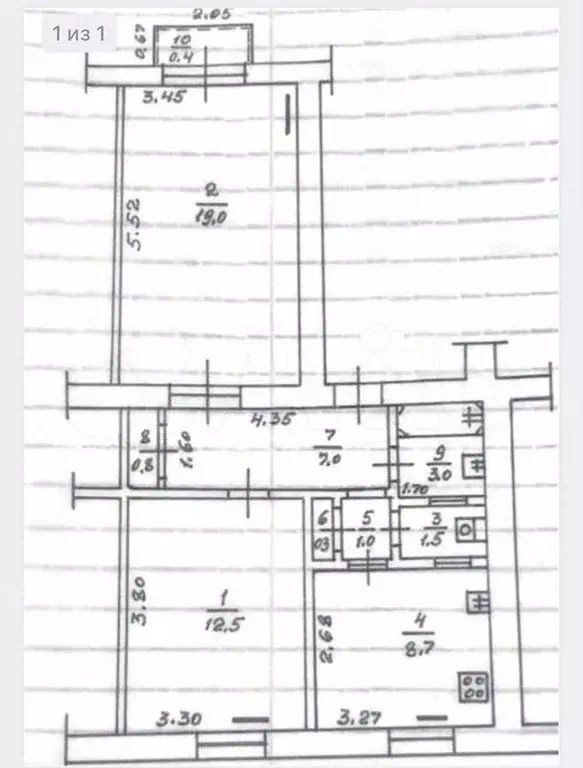 1 из 1
2.05
0.67
10
0.4
3.45
2
19.0
5.52
4.35
8
0.8
1.60
7
7.0
9
3.0
1.70
6
03
5
1.0
3
1.5
3.80
1
12.5
2.68
4
8.7
3.30
3.27